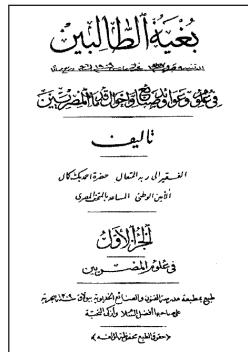 بغية الطالبين
في علوم وعوائد وصنائع وأحوال قدماء المصريين
تأليف
الفقير إلى ربه المتعال حضرة أحمد بك كمال
الأمين الوطني المساعد بالمتحف المصري
الجزء الأول
في علوم المصريين
طبع بمطبعة مدرسة الفنون والصنائع الخديوية ببولاق سنة ١٣٠٩ هجرية
على صاحبها أفضل الصلاة وأزكى التحية
(حقوق الطبع محفوظة لمؤلفه)